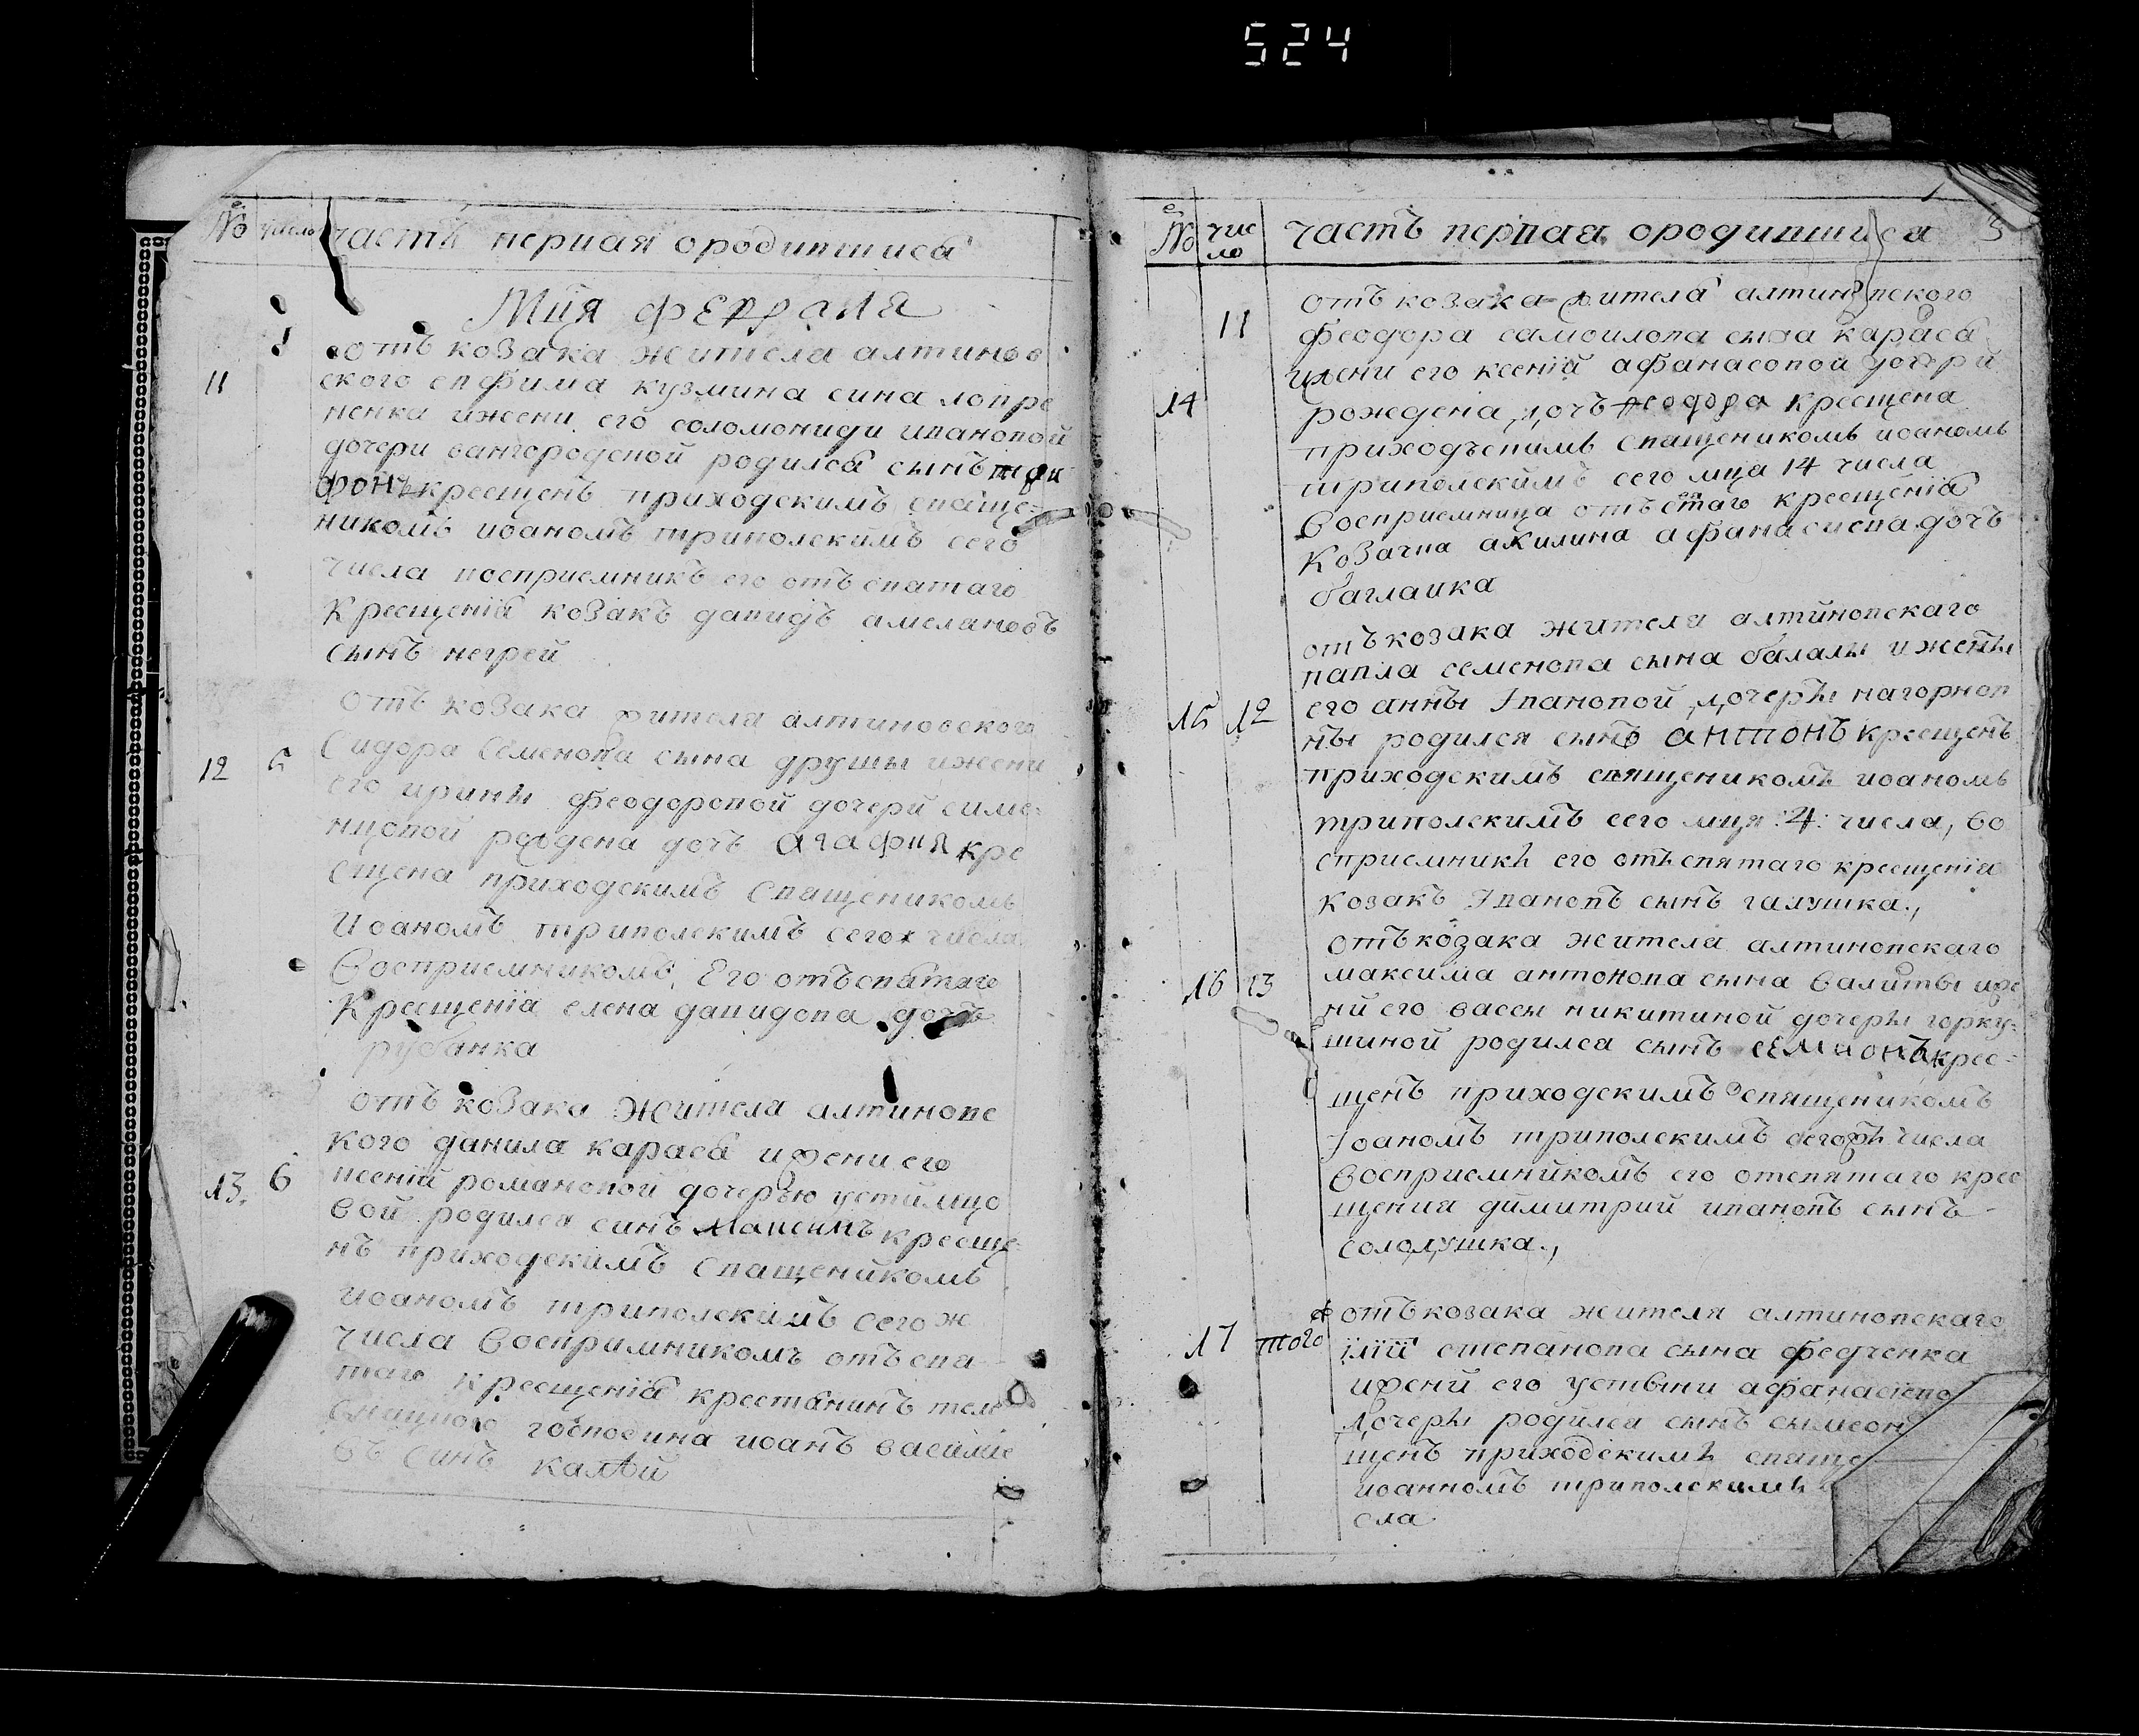 524
№ число часть первая ородившися
Мця февраля
11 1 отъ козака жителя алтинов
ского евфима кузмина сина
ненка ижени его соломониди ивановой
дочери вангородской родился сынъ три
фонъ крещенъ приходскимъ свяще-
никомъ иоаномъ триполскимъ сего
числа восприемникъ его отъ святаго
крещенія козакъ давидъ амеляновъ
сынъ негрей
отъ козака жителя алтиновского
12 5 Сидора Семенова сына друшы ижени
его ирины феодоровой дочери симо-
нцовой рождена дочъ агафия кре
щена приходскимъ Священикомъ
Иоаномъ триполскимъ сегож числа
Восприемникомъ Его отъ святаго
Крещенія елена давидова дочъ
рубанка
отъ козака Жителя алтиновс
кого данила карася ижени его
13. 6 ксеній романовой дочерью устимцо
вой родился синъ максимъ креще-
нъ приходскимъ Священикомъ
иоаномъ триполскимъ сегож
числа Восприемникомъ отъ свя
таго крещенія крестянинъ
господина иоанъ василие
въ синъ калѣй
№ число часть первая ородившися 3
отъ козака жителя алтиновского
11 феодора самоилова сына карася
ижени его ксеній афанасовой дочери
14 рождена дочъ феодора крещена
приходъскимъ Священикомъ иоаномъ
триполскимъ сего мца 14 числа
восприемница отъ святаго крещенія
Козачка акилина афанасиева дочъ
баглаика
отъ козака жителя алтиновскаго
павла семенова сына балалы ижены
15 12 его анны Iвановой дочеры нагорноп
ны родился сынъ антонъ крещенъ
приходскимъ священикомъ иоаномъ
триполскимъ сего мця :4: числа, во
сприемникъ его отъ святаго крещенія
козакъ Iвановъ сынъ галушка.,
отъ козака жителя алтиновскаго
16 13 максима антонова сына валитвы иже
ни его васси никитиной дочеры горку-
шиной родился сынъ семионъ кре-
щенъ приходскимъ священикомъ
Iоаномъ триполскимъ сегожъ числа
восприемникомъ его отсвятаго крес
щения димитрий ивановъ сынъ
солодушка.,
17 того отъ козака жителя алтиновскаго
илій степанова сына федченка
ижени его устины афанасіево
дочеры родился сынъ сымеон
щенъ приходскимъ свяще
иоанномъ триполскимъ
сла